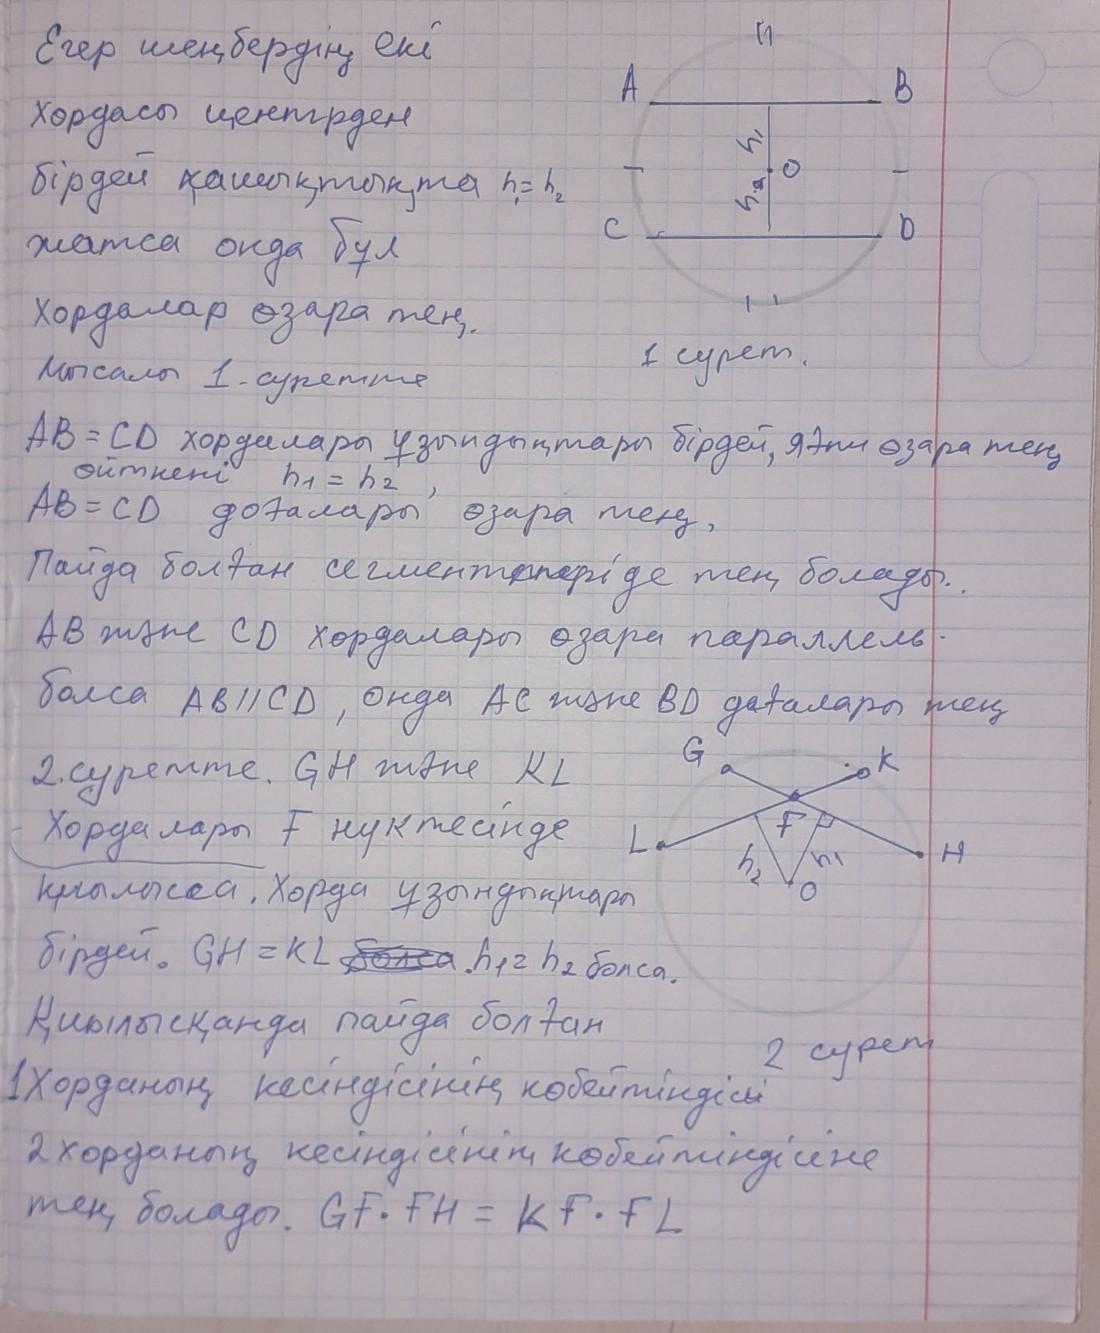 Егер шеңбердің екі
хордасы центрден
бірдей қашықтықта h₁=h₂
жатса онда бұл
хордалар өзара тең.
A B
h₁
O
h₂
C D
1 сурет.
Мысалы 1-суретте
AB=CD хордалары ұзындықтары бірдей, яғни өзара тең
өйткені h₁=h₂,
AB=CD доғалары өзара тең,
Пайда болған сегменттері де тең болады.
AB және CD хордалары өзара параллель
болса AB//CD, онда AC және BD доғалары тең
2.суретте. GH және KL
Хордалары F нүктесінде
қиылысса. Хорда ұзындықтары
бірдей. GH=KL болса. h₁=h₂ болса.
G K
F
L H
h₂ h₁
O
2 сурет
Қиылысқанда пайда болған
1 Хорданың кесіндісінің көбейтіндісі
2 хорданың кесіндісінің көбейтіндісіне
тең болады. GF·FH=KF·FL